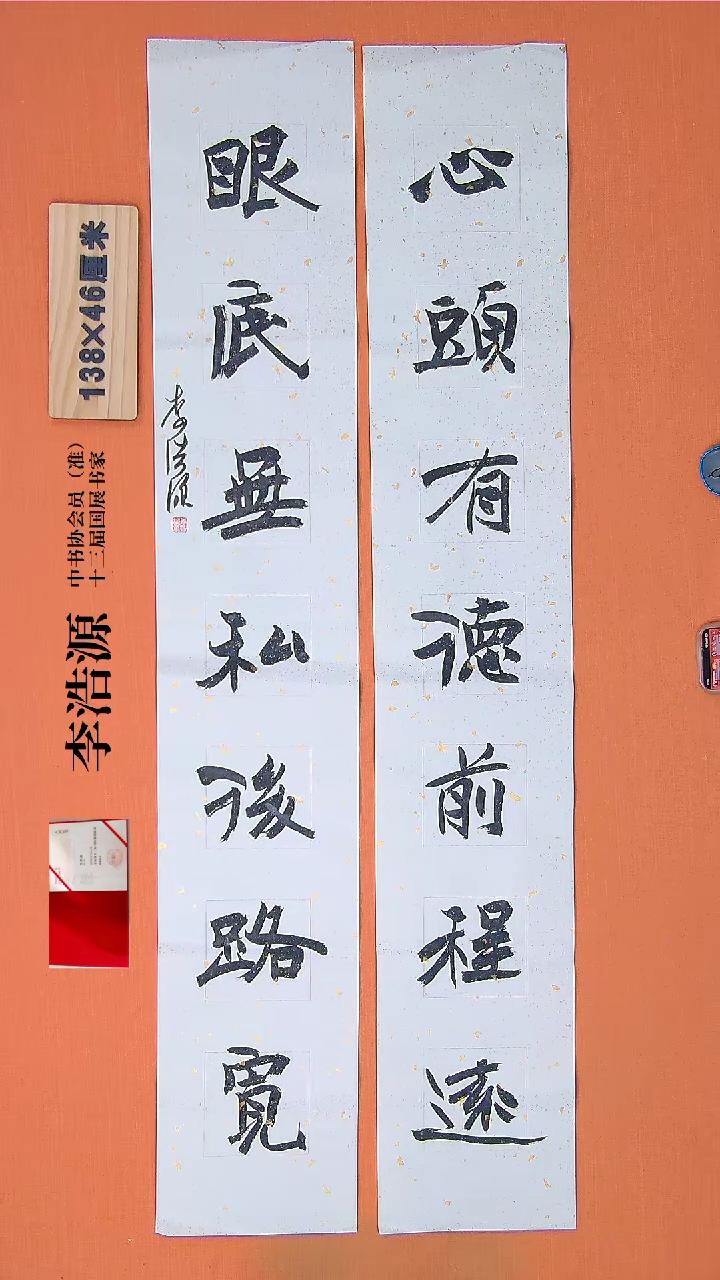 心頭有德前程遠
眼底無私後路寬
李浩源
138×46厘米
中书协会员（准）
十三届国展书家
李浩源